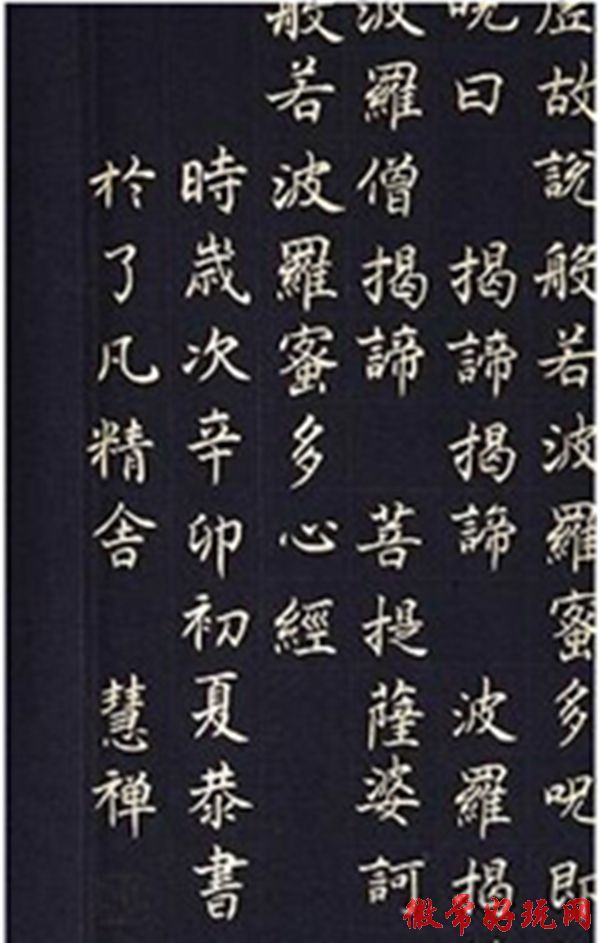 虛故說般若波羅蜜多呪即
呪曰 揭諦揭諦 波羅揭
波羅僧揭諦 菩提薩婆訶
般若波羅蜜多心經
時歲次辛卯初夏恭書
於了凡精舍 慧禅
徽常好玩网